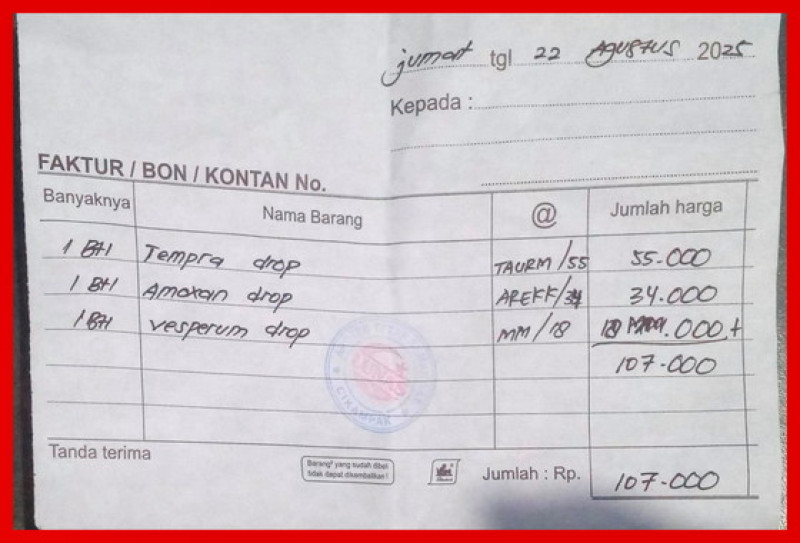 jumat tgl 22 AGUSTUS 2025
Kepada :
FAKTUR / BON / KONTAN No.
Banyaknya Nama Barang @ Jumlah harga
1 Btl Tempra drop TAURM/55 55.000
1 Btl Amoxan drop AREKF/34 34.000
1 Btl vesperum drop MM/18 18 .000 +
107-000
CIKAMPAK
Tanda terima
Barang² yang sudah dibeli
tidak dapat dikembalikan !
Jumlah : Rp. 107-000